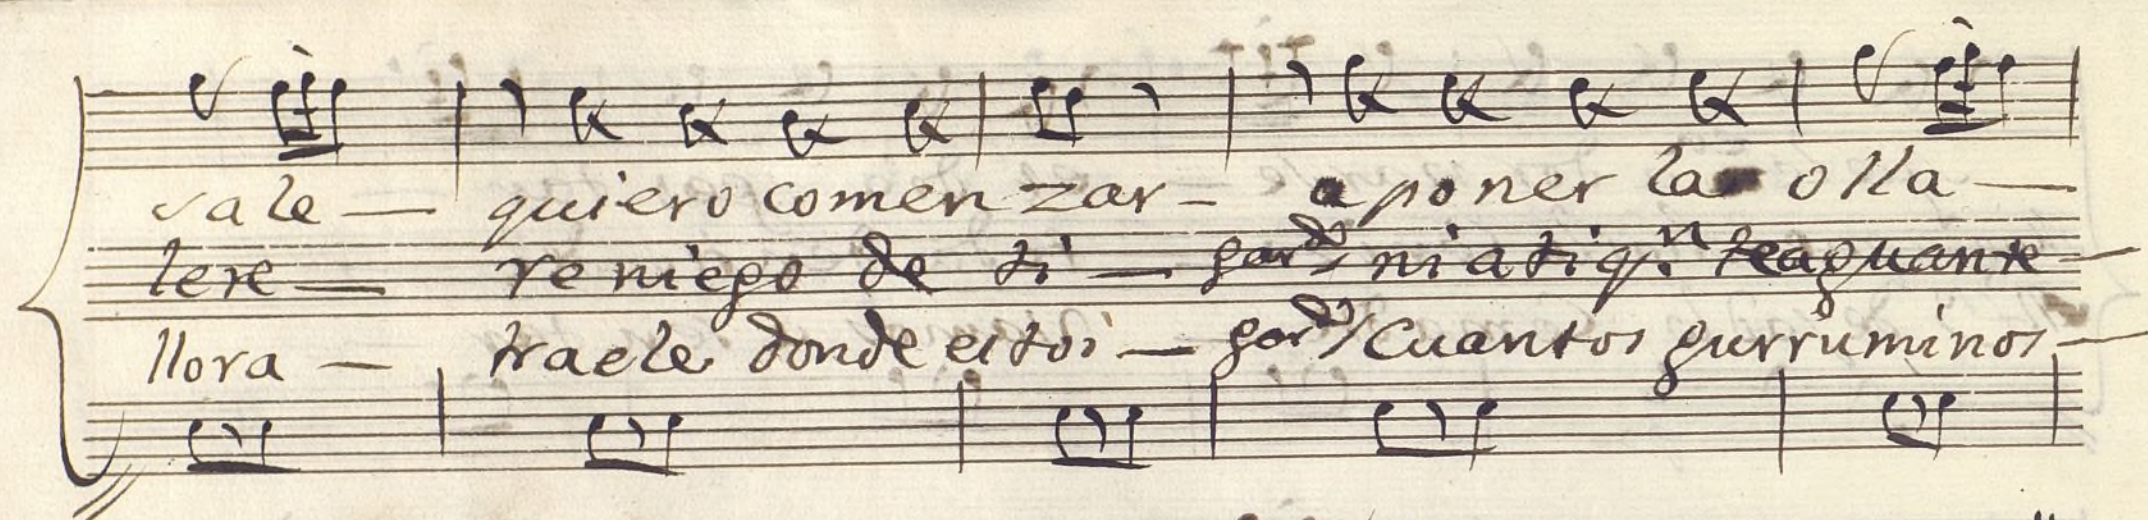 sale — quiero comen zar — a poner la olla —
lere — re niego de ti — gord.ª ni a ti q.n te aguante —
llora — traele donde estoi — gord.ª Cuantos gurruminos —